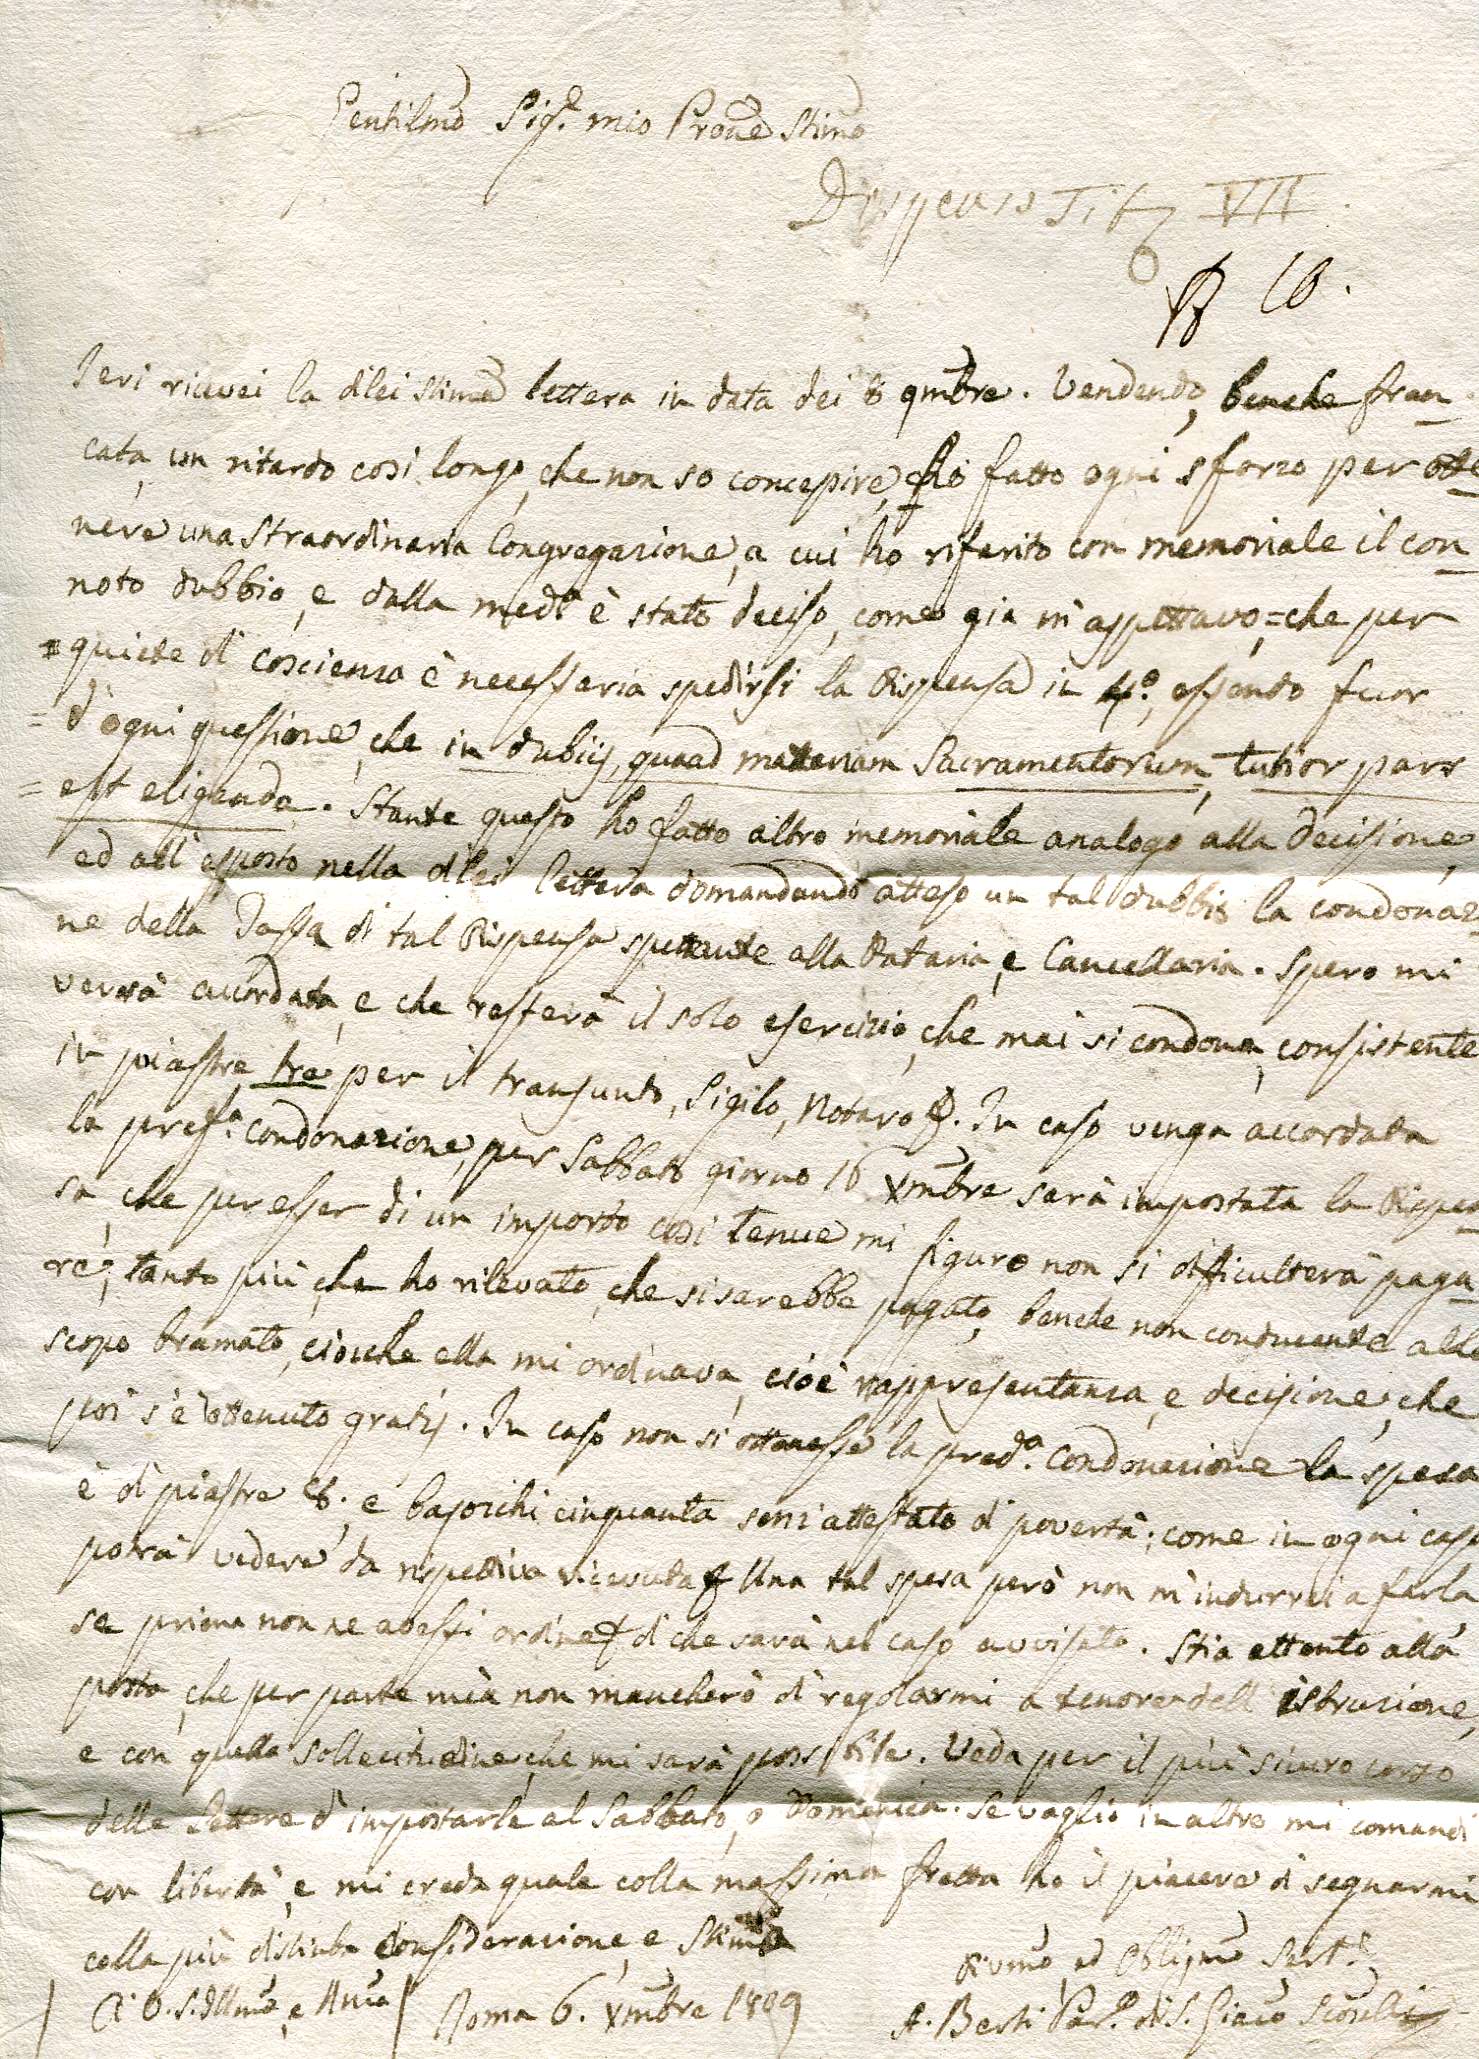 Gentilmo Sigr. mio Prone Stimo
Dispensa Tit VII
10.
Ieri ricevei la di lei stima lettera in data dei 8 9mbre. Vendendo, benche fran-
cata, un ritardo così longo, che non so concepire, hò fatto ogni sforzo per otte
nere una straordinaria Congregazione, a cui ho riferito con memoriale il con
noto dubbio, e dalla meda è stato deciso, come gia m'aspettavo, = che per
= quiete di coscienza è necessaria spedirsi la Dispensa in 4°, essendo fuor
= d'ogni questione, che in dubiis, quoad materiam Sacramentorum, tutior pars
= est eligenda. Stante questo ho fatto altro memoriale analogo alla decisione,
ed all'esposto nella di lei lettera domandando atteso un tal dubbio la condonazi
ne della Tassa di tal Dispensa spettante alla Dataria, e Cancellaria. Spero mi
verrà accordata, e che resterà il solo esercizio, che mai si condona, consistente
in piastre tre per il transunto, Sigilo, Notaro &. In caso venga accordata
la presa. condonazione, per Sabbato giorno 16 Xmbre sarà impostata la Dispen
sa, che per esser di un importo così tenue mi figuro non si difficulterà paga
re; tanto più che ho rilevato, che si sarebbe pagato, benche non conducente allo
scopo bramato, cioche ella mi ordinava, cioè rappresentanza, e decisione, che
poi s'è ottenuto gratis. In caso non si ottenesse la preda. Condonazione la spesa
è di piastre 8. e bajocchi cinquanta senz'attestato di povertà; come in ogni caso
potrà vedere da rispettiva ricevuta Una tal spesa però non m'indurrei a farla
se prima non ne avessi ordine, di che sarà nel caso avvisato. Stia attento alla
posta, che per parte mia non mancherò di regolarmi a tenore dell'istruzione,
e con quella sollecitudine, che mi sarà possibile. Veda per il più sicuro corso
delle lettere d'impostarle al Sabbato, o Domenica. Se vaglio in altro mi comandi
con libertà, e mi creda quale colla massima fretta ho il piacere di segnarmi
colla più distinta Considerazione, e Stima
Di V. S. Illma, e Rma
Roma 6. Xmbre 1809
Divmo ed Obbligmo Servr.
A. Berti Par. di S. Giaco